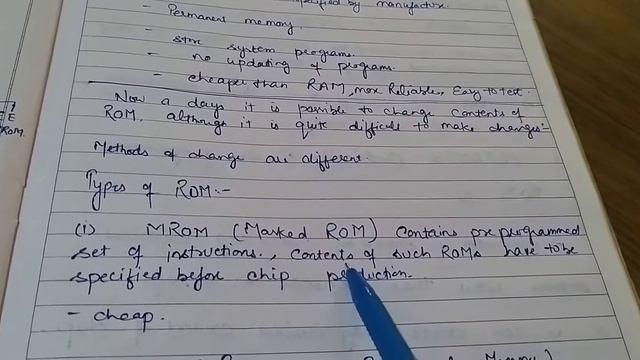 specified by manufacture.
- Permanent memory.
- store system programs.
- no updating of programs.
- cheaper than RAM, more Reliable, Easy to test.
Now a days it is possible to change contents of
ROM, although it is quit difficult to make changes:-
Methods of change are different.
Types of ROM:-
(i) MROM (Marked ROM) Contains pre programmed
set of instructions., Contents of such ROMs have to be
specified before chip production.
- cheap.
E
ROM.